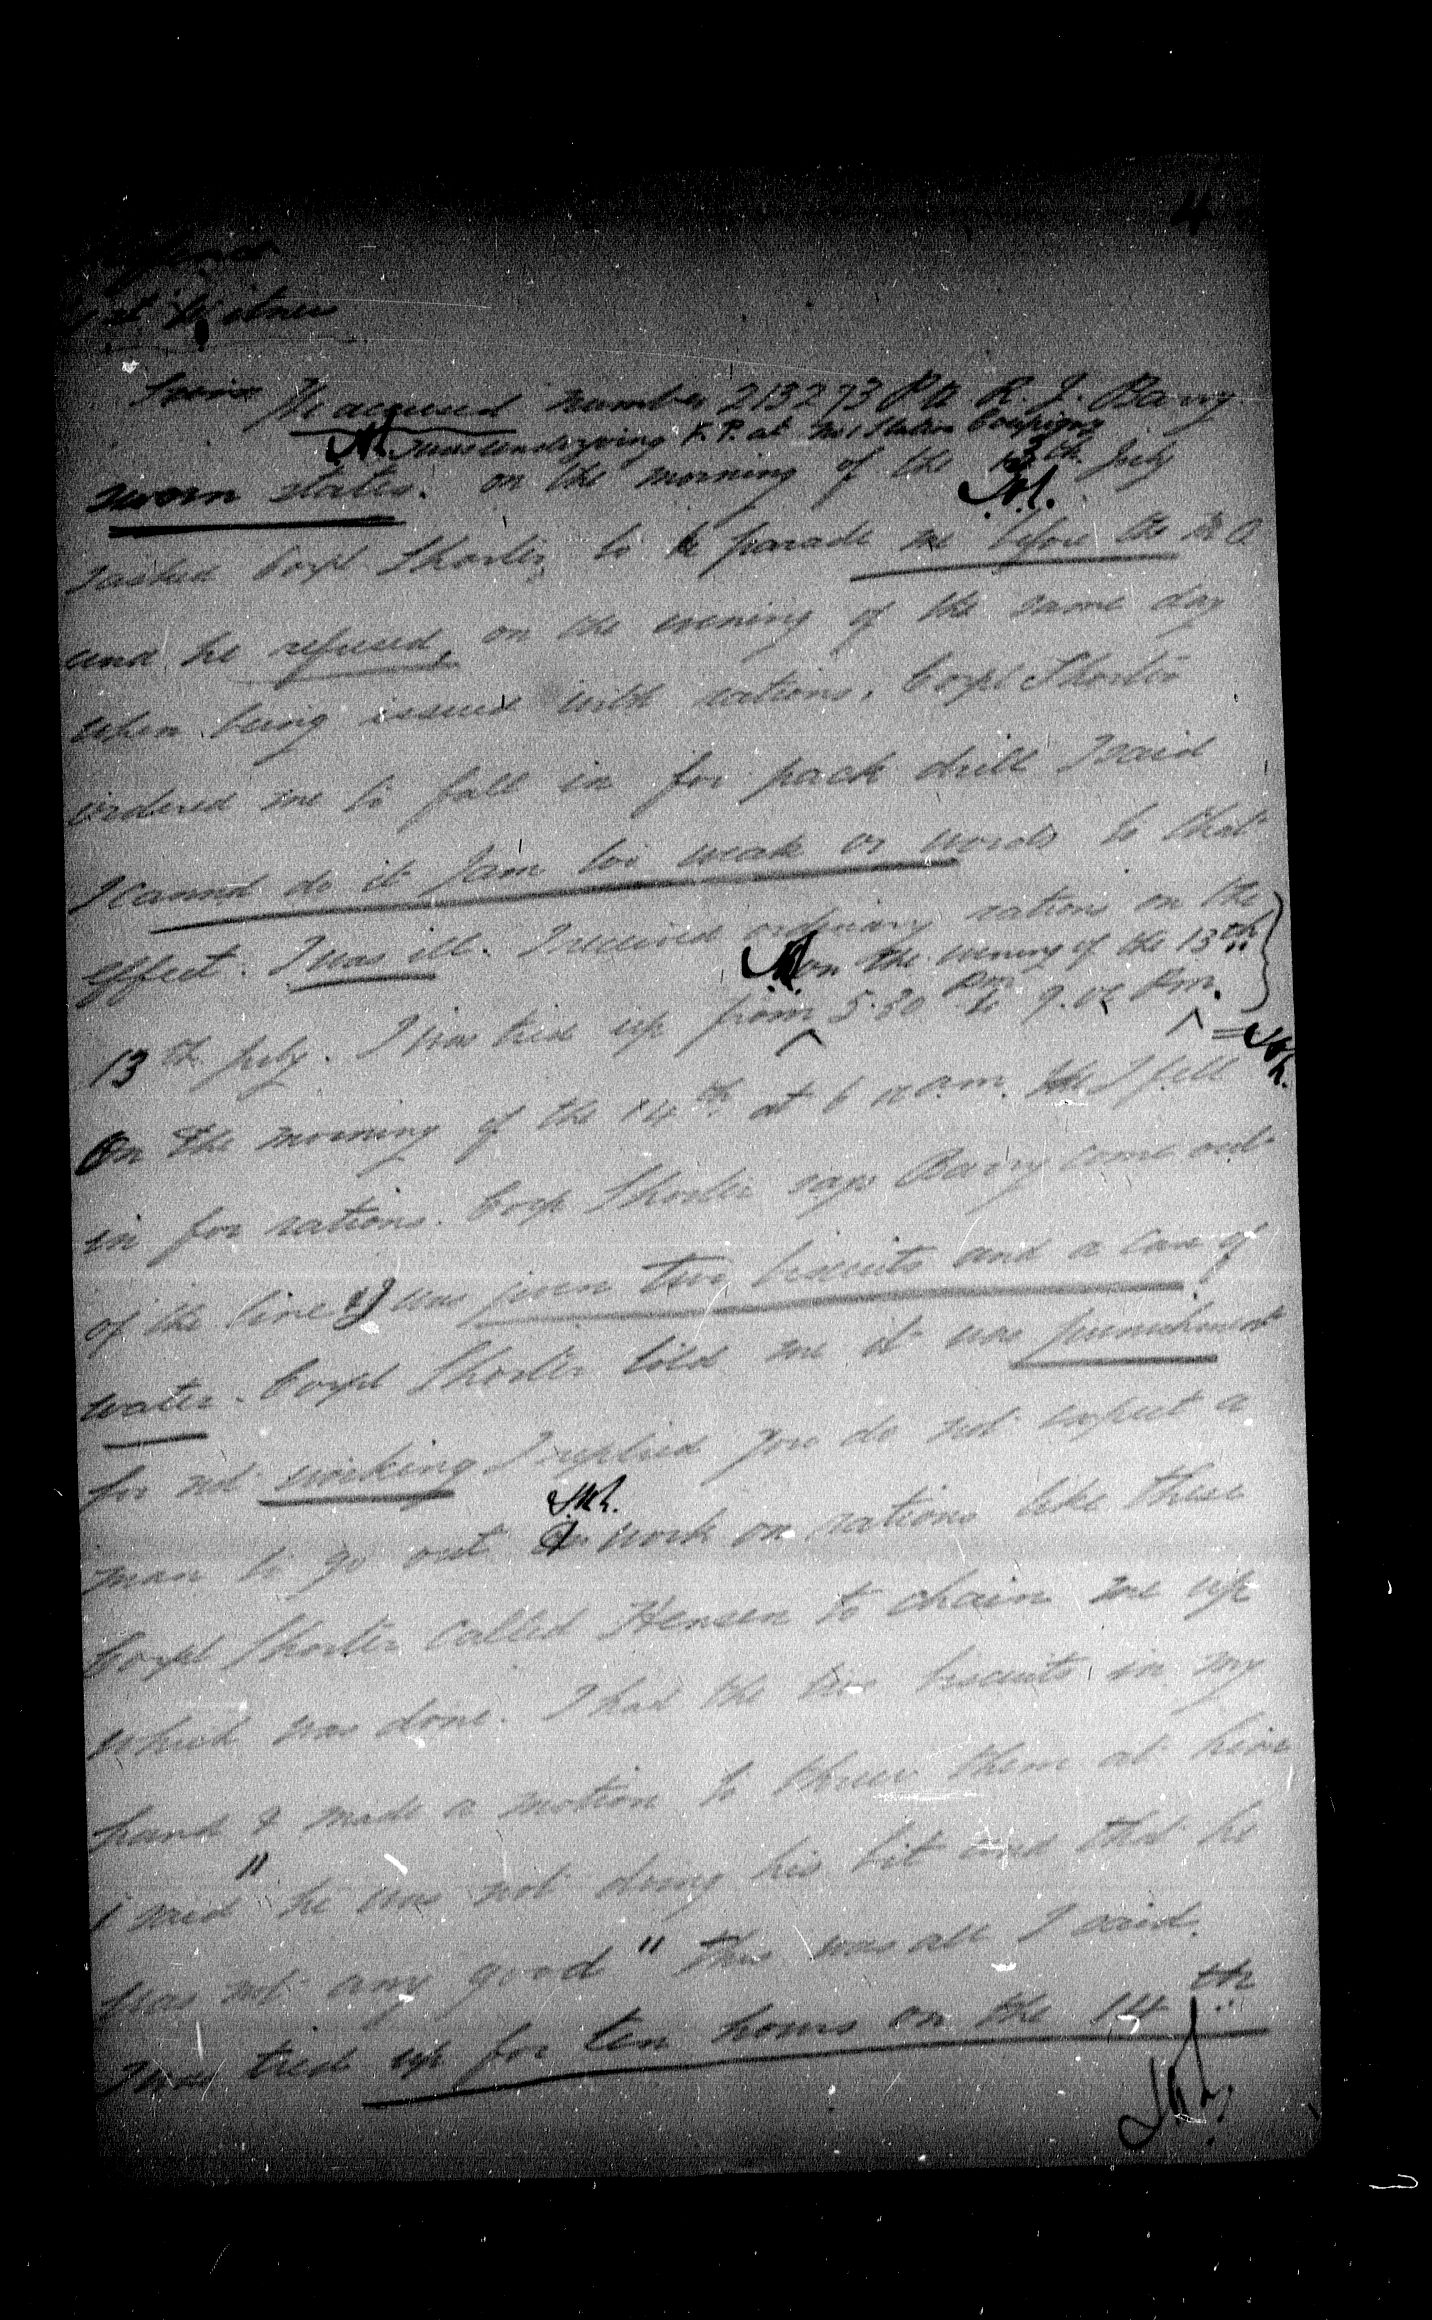 4
Defence
1st Witness
The accused number 213273 Pte R. J. Barry
I was undergoing F.P. at No 1 Station
sworn states. on the morning of the 13th July
I asked Corpl Shorter to parade me before the M.O
and he refused, on the evening of the same day
when being issued with rations, Corpl Shorter
ordered me to fall in for pack drill I said
I cannot do it I am too weak or words to that
effect. I was ill. I received ordinary rations on the
on the evening of the 13th
13th July. I was tied up from 5.30 Pm to 9.0 Pm.
On the morning of the 14th at 6 a.m. I fell
in for rations. Corp Shorter says Barry come out
of the line & I was given two biscuits and a can of
water. Corpl Shorter told me it was punishment
for not working I replied you do not expect a
man to go out work on rations like these
Corpl Shorter called Hensen to chain me up
which was done. I had the two biscuits in my
hand I made a motion to throw them at him
I said "he was not doing his bit and that he
was not any good" this was all I said.
I was tied up for ten hours on the 14th